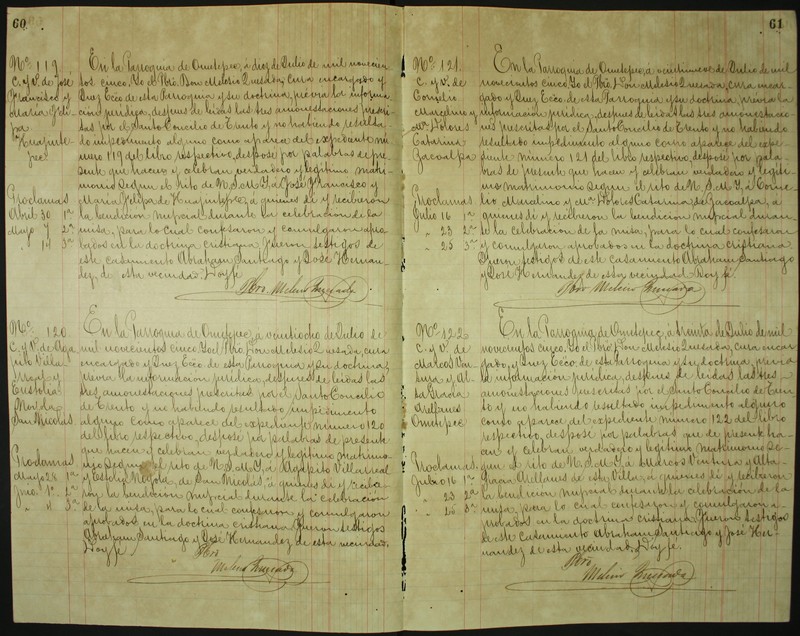 60
Nº 119
C. y V. de José
Francisco y
Maria Feli
pa
Huajinte
pec
Proclamas
Abril 30 1ª
Mayo 7 2ª
" 14 3ª
En la Parroquia de Ometepec, á diez de Julio de mil novecien
tos cinco, Yo el Pbro. Don Melesio Quesada, cura encargado y
Juez Ecco de esta Parroquia y su doctrina, previa la informa
ción jurídica, despues de leidas las tres amonestaciones prescri
tas por el Santo Concilio de Trento y no habiendo resulta
do impedimento alguno como aparece del expediente nú
mero 119 del libro respectivo, desposé por palabras de pre
sente que hacen y celebran verdadero y legítimo matri
monio segun el rito de N. S. M. Y. á José Francisco y
Maria Felipa de Huajintepec, á quienes dí y recibieron
la bendicion nupcial durante la celebracion de la
misa, para lo cual confesaron y comulgaron apro
bados en la doctrina cristiana. Fueron testigos de
este casamiento Abraham Santiago y José Hernan
dez, de esta vecindad. Doy fe.
Pbro. Melesio Quesada
Nº 120
C. y V. de Aga
pito Villa
rreal y
Eustolia
San Nicolás
Proclamas
Mayo 28 1ª
Junio 1º 2ª
" 4 3ª
En la Parroquia de Ometepec, á veintiocho de Julio de
mil novecientos cinco, Yo el Pbro. Don Melesio Quesada, cura
encargado y Juez Ecco de esta Parroquia y su doctrina,
previa la informacion jurídica, despues de leidas las
tres amonestaciones prescritas por el Santo Concilio
de Trento y no habiendo resultado impedimento
alguno como aparece del expediente número 120
del libro respectivo, desposé por palabras de presente
que hacen y celebran verdadero y legítimo matrimo
nio segun el rito de N. S. M. Y. á Agapito Villarreal
y de San Nicolás, á quienes dí y recibie
ron la bendicion nupcial durante la celebracion
de la misa, para lo cual confesaron y comulgaron
aprobados en la doctrina cristiana. Fueron testigos
Abraham Santiago y José Hernandez de esta vecindad.
Doy fe.
Pbro
Melesio Quesada
61
Nº 121
C. y V. de
Cornelio
Marcelino y
Mª Dolores
Catarina
Zacoalpa
Proclamas
Julio 16 1ª
" 23 2ª
" 25 3ª
En la Parroquia de Ometepec, á veintinueve de Julio de mil
novecientos cinco, Yo el Pbro. Don Melesio Quesada, cura encar
gado y Juez Ecco de esta Parroquia y su doctrina, previa la
informacion jurídica, despues de leidas las tres amonestacio
nes prescritas por el Santo Concilio de Trento y no habiendo
resultado impedimento alguno como aparece del expe
diente número 121 del libro respectivo, desposé por pala
bras de presente que hacen y celebran verdadero y legíti
mo matrimonio segun el rito de N. S. M. Y. á Corne
lio Marcelino y Mª Dolores Catarina de Zacoalpa, á
quienes dí y recibieron la bendicion nupcial duran
te la celebracion de la misa, para lo cual confesaron
y comulgaron aprobados en la doctrina cristiana.
Fueron testigos de este casamiento Abraham Santiago
y José Hernandez de esta vecindad. Doy fe.
Pbro Melesio Quesada
Nº 122
C. y V. de
Marcos Ven
tura y Al
ta Gracia
Arellanes
Ometepec
Proclamas
Julio 16 1ª
" 23 2ª
" 26 3ª
En la Parroquia de Ometepec, á treinta de Julio de mil
novecientos cinco, Yo el Pbro. Don Melesio Quesada, cura encar
gado y Juez Ecco de esta Parroquia y su doctrina, previa
la informacion jurídica, despues de leidas las tres
amonestaciones prescritas por el Santo Concilio de Tren
to y no habiendo resultado impedimento alguno
como aparece del expediente número 122 del libro
respectivo, desposé por palabras que de presente ha
cen y celebran verdadero y legítimo matrimonio se
gun el rito de N. S. M. Y. á Marcos Ventura y Alta
Gracia Arellanes de esta Villa, á quienes dí y recibieron
la bendicion nupcial durante la celebracion de la
misa, para lo cual confesaron y comulgaron a
probados en la doctrina cristiana. Fueron testigos
de este casamiento Abraham Santiago y José Her
nandez de esta vecindad. Doy fe.
Pbro
Melesio Quesada